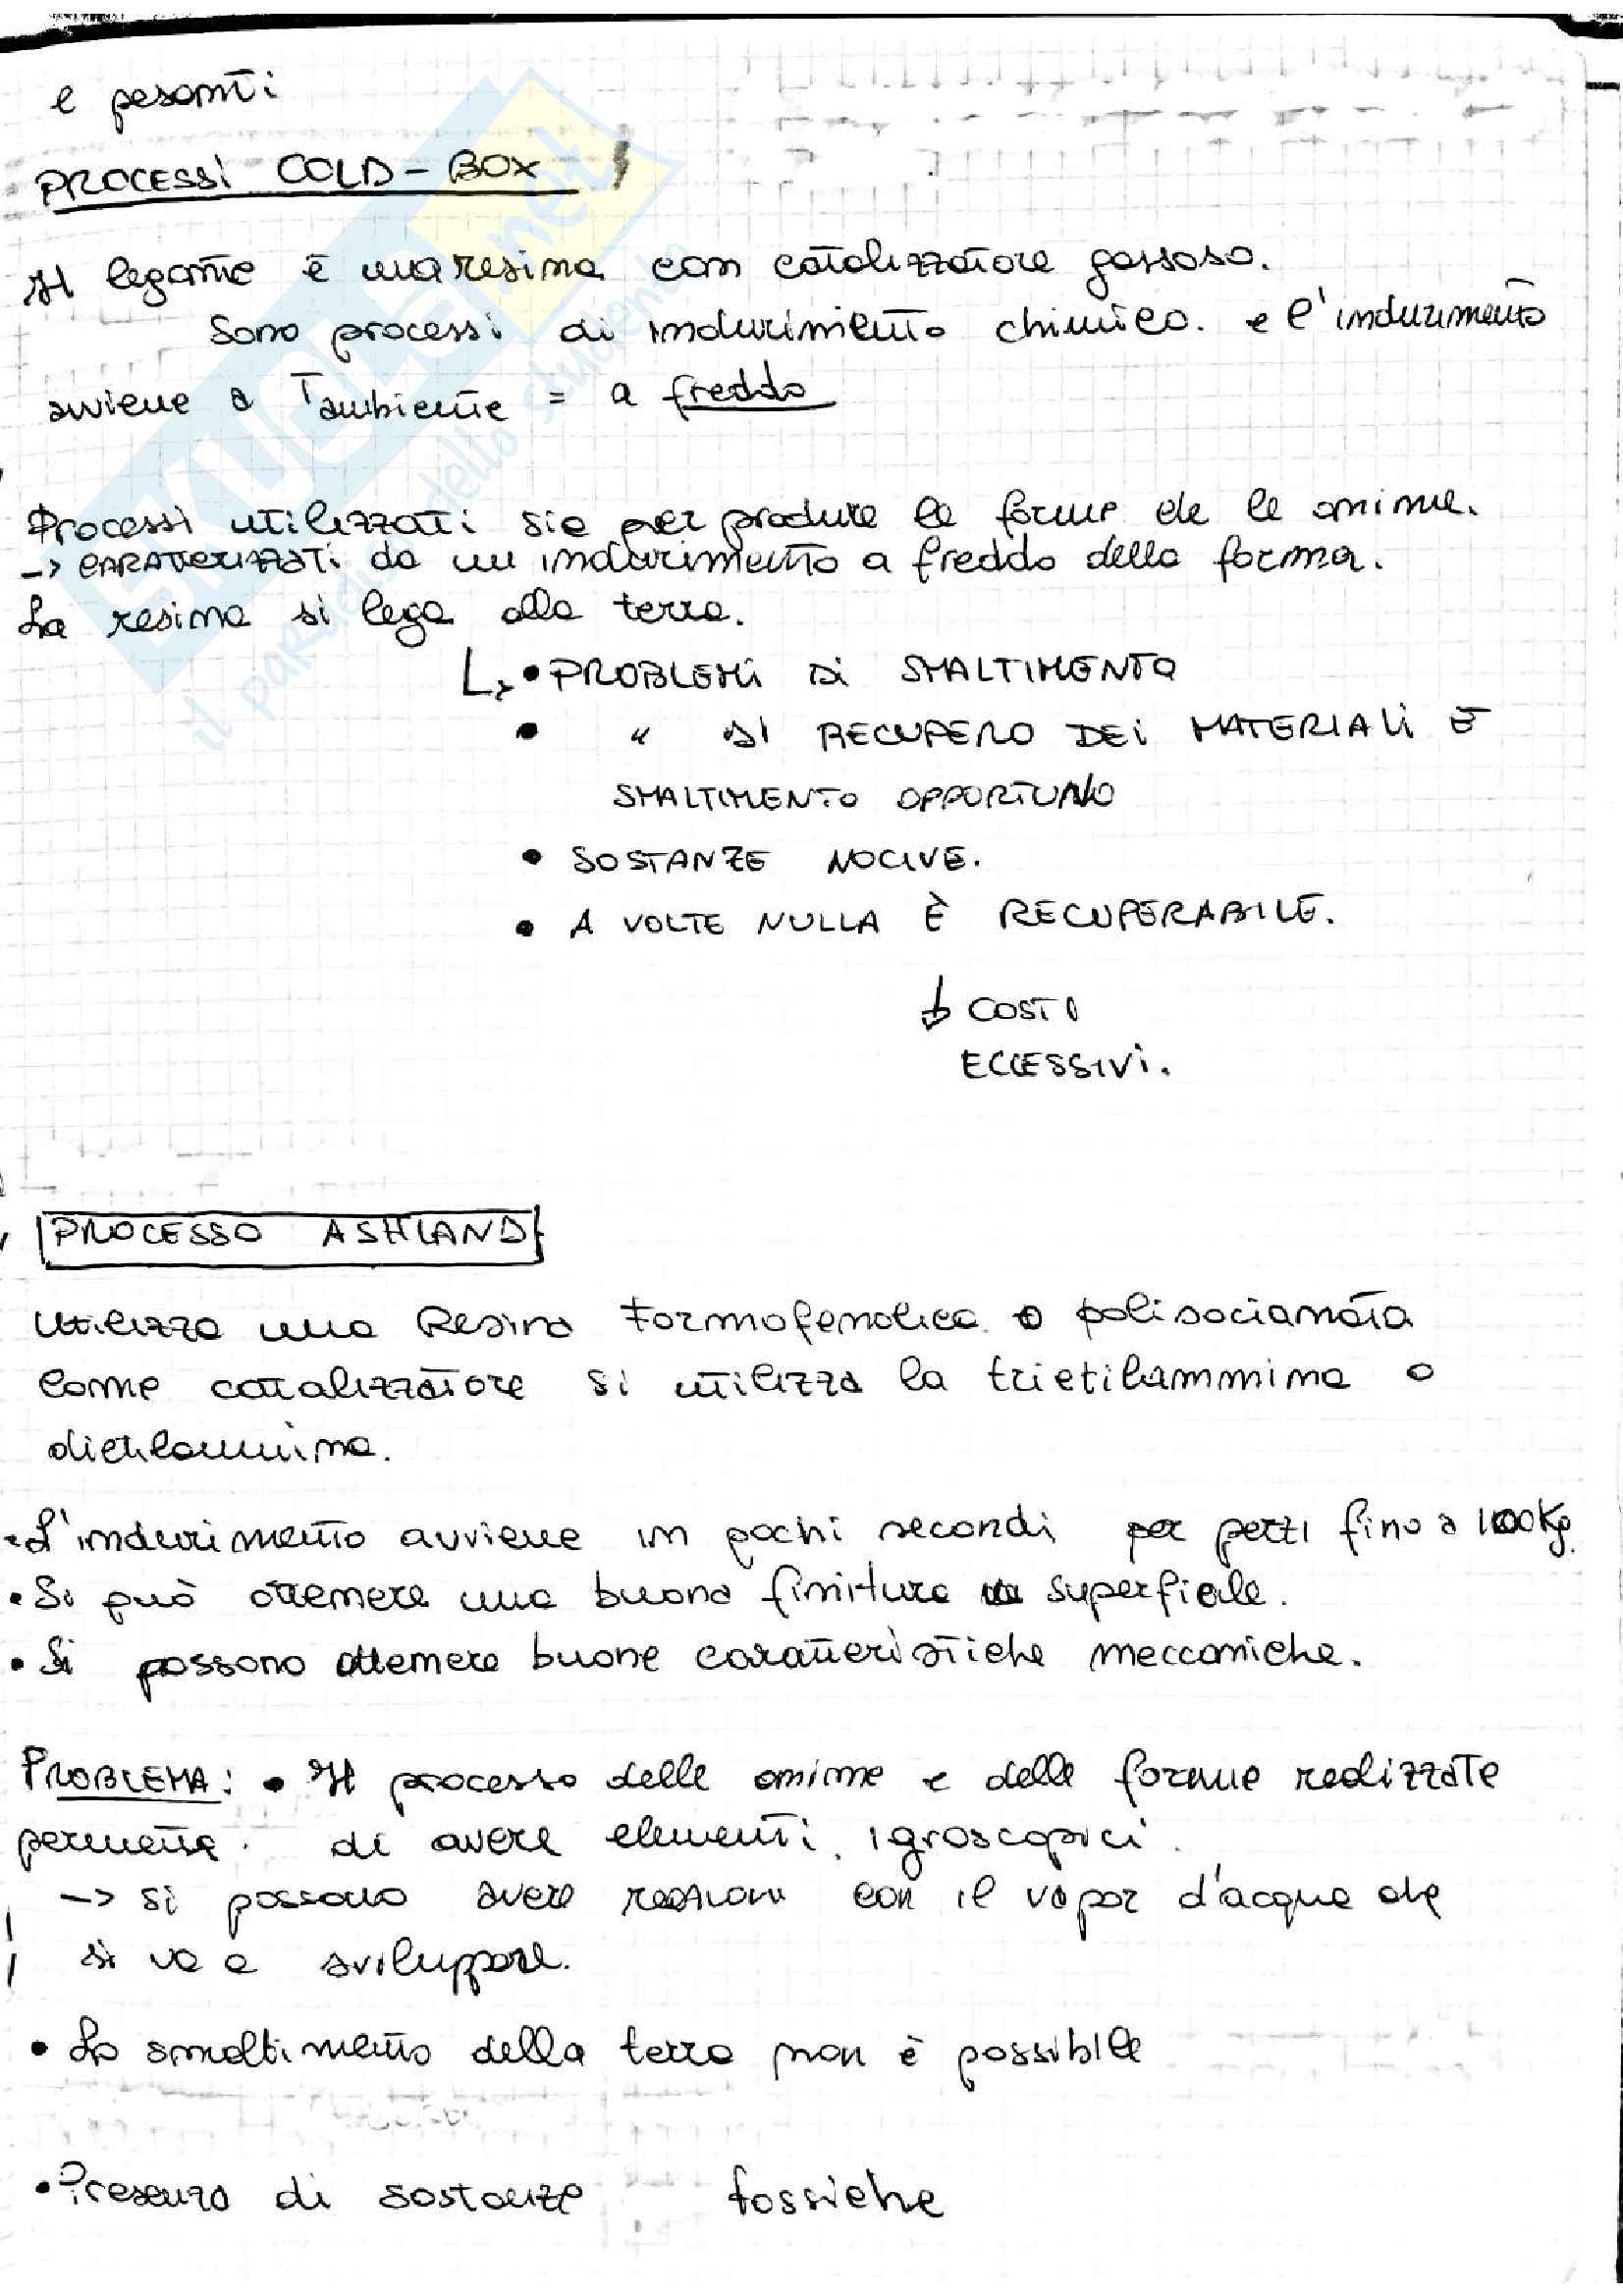 e pesanti
PROCESSI COLD-BOX
Il legante è una resina con catalizzatore gassoso.
Sono processi di indurimento chimico. e l'indurimento
avviene a T ambiente = a freddo
Processi utilizzati sia per produrre le forme che le anime.
-> CARATTERIZZATI da un indurimento a freddo della forma.
La resina si lega alla terra.
↳ • PROBLEMI DI SMALTIMENTO
• " DI RECUPERO DEI MATERIALI E
SMALTIMENTO OPPORTUNO
• SOSTANZE NOCIVE.
• A VOLTE NULLA È RECUPERABILE.
↓ COSTI
ECCESSIVI.
PROCESSO ASHLAND
Utilizza una Resina Formofenolica o polisocianata
come catalizzatore si utilizza la trietilammina o
dietilammina.
• L'indurimento avviene in pochi secondi per pezzi fino a 100Kg.
• Si può ottenere una buona finitura superficiale.
• Si possono ottenere buone caratteristiche meccaniche.
PROBLEMA: • Il processo delle anime e delle forme realizzate
permette di avere elementi igroscopici.
-> si possono avere reazioni con il vapor d'acqua che
si va a sviluppare.
• Lo smaltimento della terra non è possibile
• Presenza di sostanze tossiche
SKUOLA.net
il paradiso dello studente